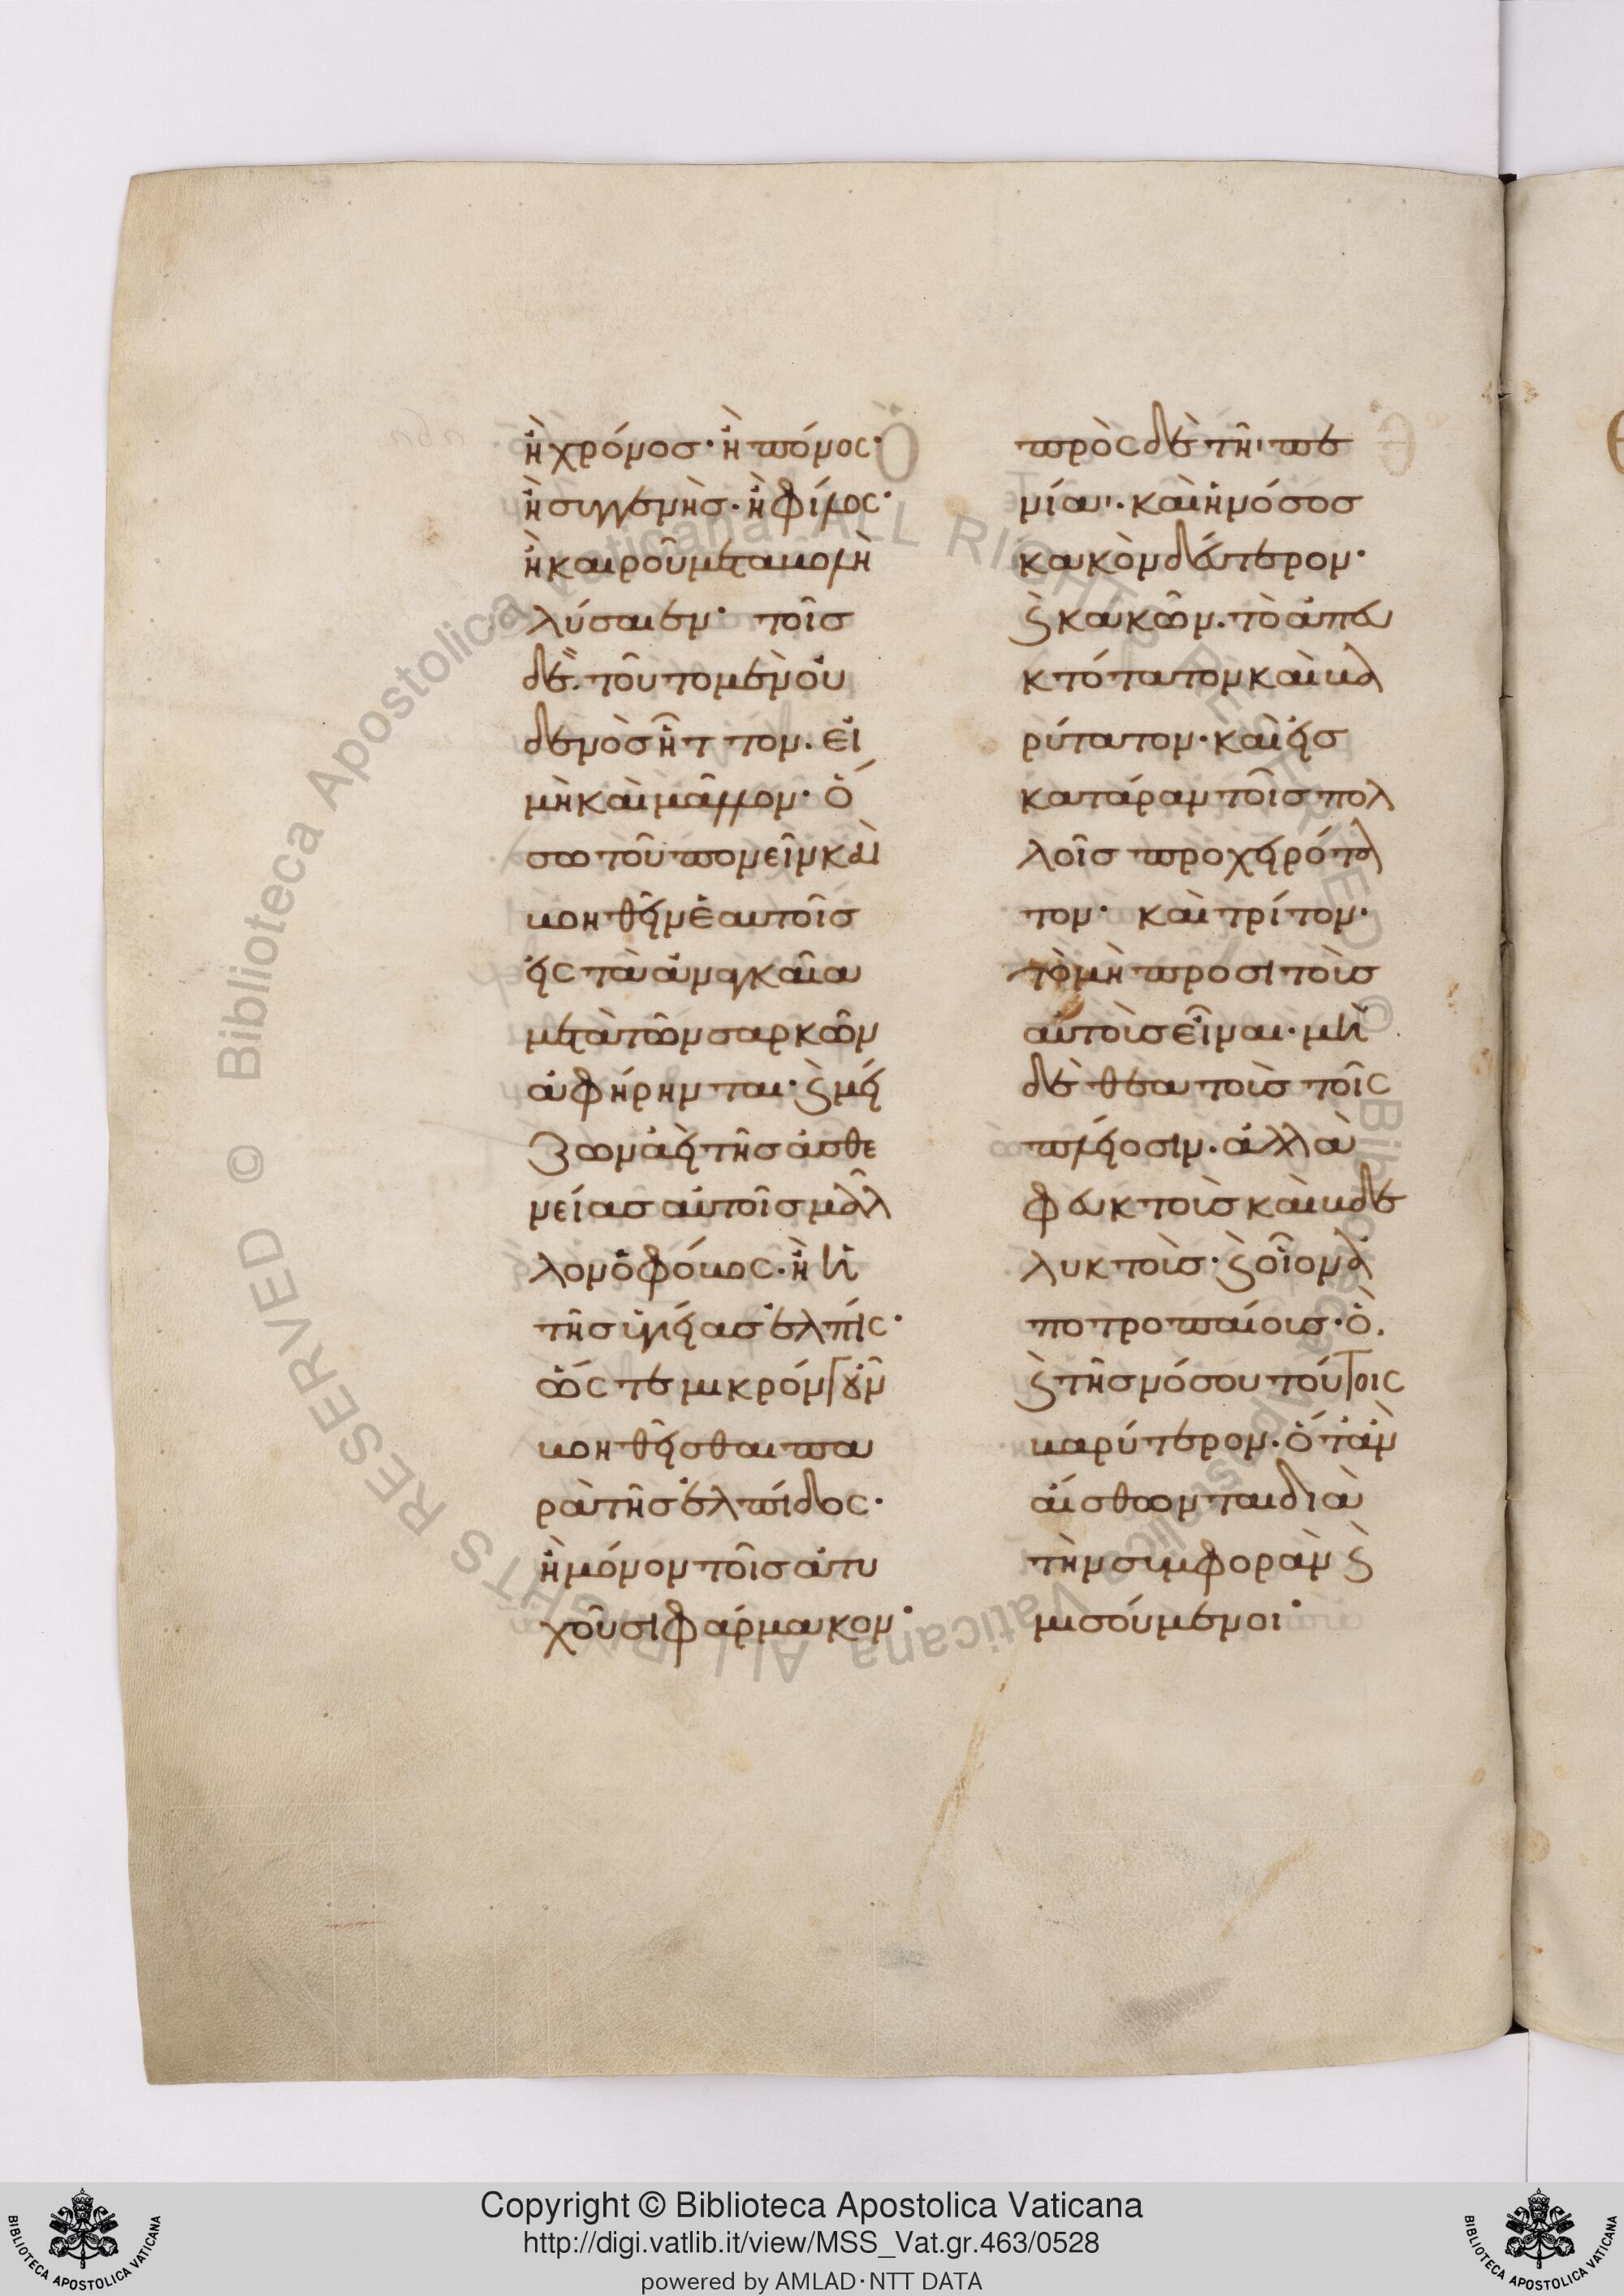 ἢ χρόνος· ἢ πόνος·
ἢ συγγενὴς· ἢ φίλος·
ἢ καιροῦ μεταβολὴ
λύσαι ἐν· τοῖς
δὲ· τοῦτο μὲν οὐ
δενὸς ἧττον· εἰ
μὴ καὶ μᾶλλον· ὅ
σω τοῦ πονεῖν καὶ
βοηθεῖν ἑαυτοῖς
εἰς τὰ ἀναγκαῖα
μετὰ τῶν σαρκῶν
ἀφήρηνται· καὶ μεί
ζων ἀεὶ τῆς ἀσθε
νείας αὐτοῖς μᾶλ
λον ὁ φόβος· ἢ ἡ
τῆς ὑγείας ἐλπίς·
ὥς τε μικρὸν γοῦν
βοηθεῖσθαι πα
ρὰ τῆς ἐλπίδος·
ἢ μόνον τοῖς ἀτυ
χοῦσι φάρμακον·
πρὸς δὲ τῆι πε
νίαι· καὶ ἡ νόσος
κακὸν δεύτερον·
καὶ κακῶν· τὸ ἀπευ
κτότατον καὶ βα
ρύτατον· καὶ εἰς
κατάραν τοῖς πολ
λοῖς προχειρότα
τον· καὶ τρίτον·
τὸ μὴ προσιτοὺς
αὐτοὺς εἶναι· μη
δὲ θεατοὺς τοῖς
πλείοσιν· ἀλλὰ
φευκτοὺς καὶ βδε
λυκτοὺς· καὶ οἷον ἀ
ποτροπαίους· ὃ·
καὶ τῆς νόσου τούτοις
βαρύτερον· ὅταν
αἴσθωνται διὰ
τὴν συμφορὰν καὶ
μισούμενοι·
Copyright © Biblioteca Apostolica Vaticana
http://digi.vatlib.it/view/MSS_Vat.gr.463/0528
powered by AMLAD·NTT DATA